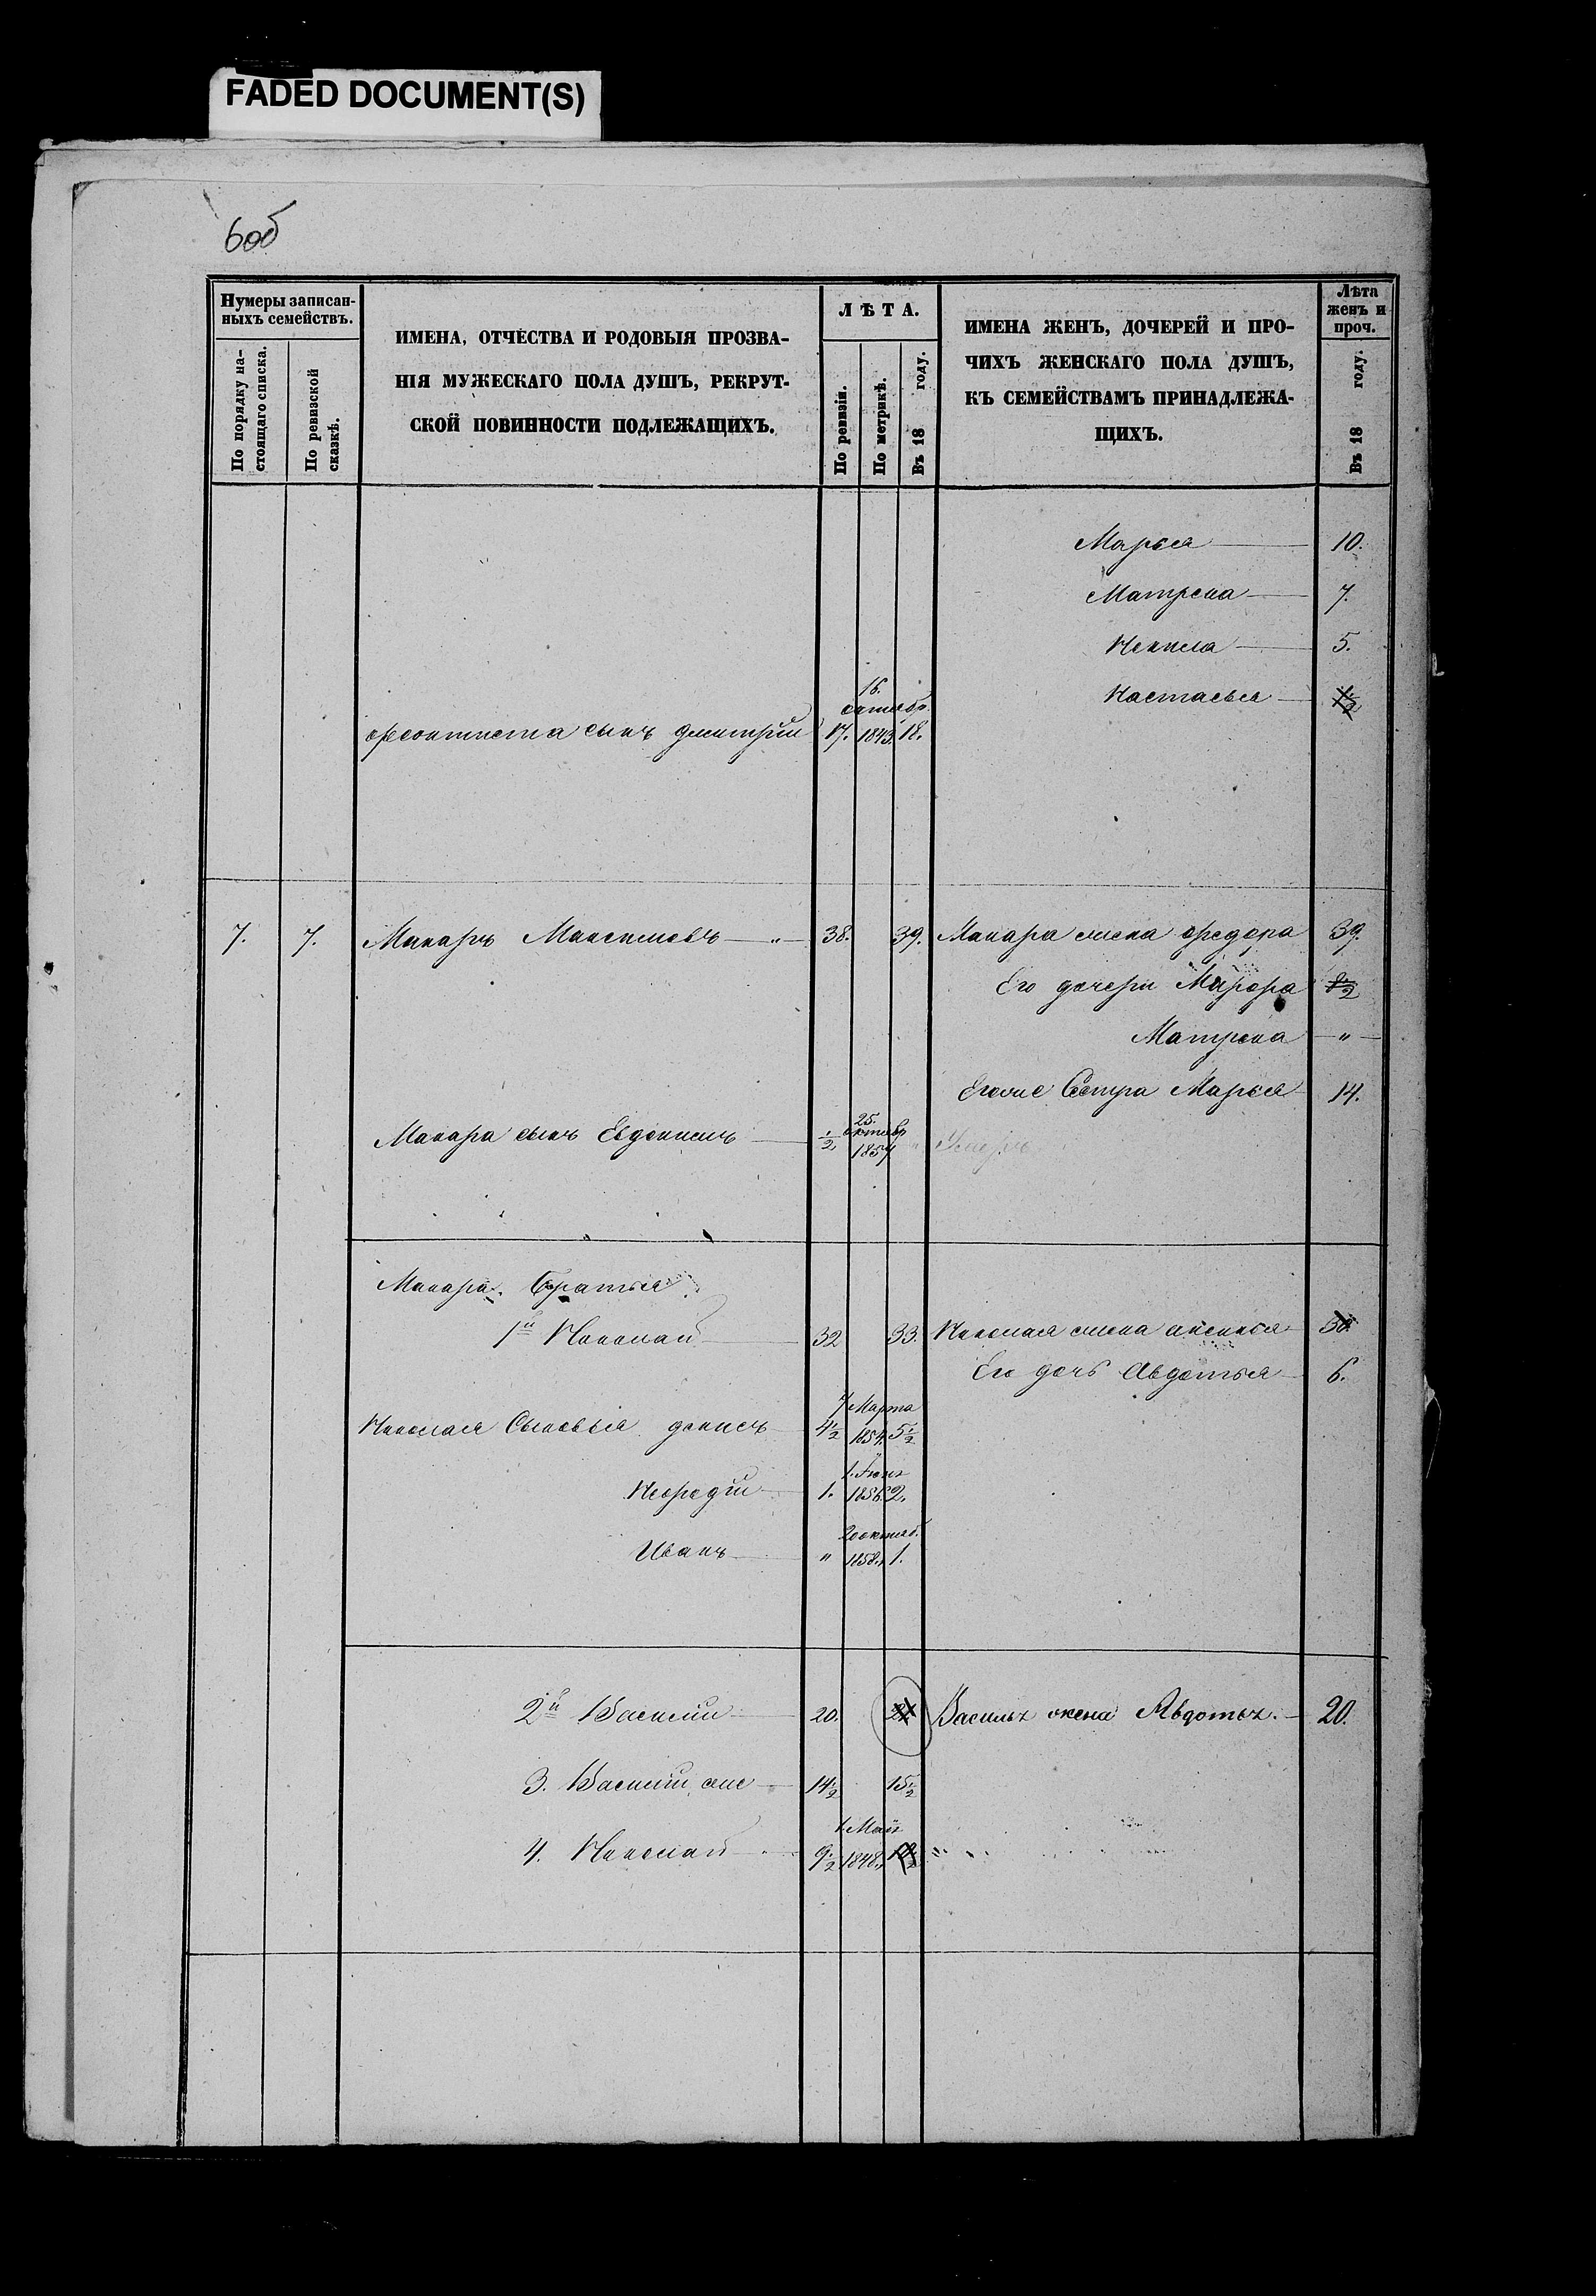 FADED DOCUMENT(S)
6об
Нумеры записан-
ныхъ семействъ.
По порядку на-
стоящаго списка.
По ревизской
сказкѣ.
ИМЕНА, ОТЧЕСТВА И РОДОВЫЯ ПРОЗВА-
НІЯ МУЖЕСКАГО ПОЛА ДУШЪ, РЕКРУТ-
СКОЙ ПОВИННОСТИ ПОДЛЕЖАЩИХЪ.
ЛѢТА.
По ревизіи.
По метрикѣ.
Въ 18 году.
ИМЕНА ЖЕНЪ, ДОЧЕРЕЙ И ПРО-
ЧИХЪ ЖЕНСКАГО ПОЛА ДУШЪ,
КЪ СЕМЕЙСТВАМЪ ПРИНАДЛЕЖА-
ЩИХЪ.
Лѣта
женъ и
проч.
Въ 18 году.
Марья 10.
Матрена 7.
Некила 5.
Настасья
16.
октябр.
феоктиста сынъ дмитрій 17. 1843. 18.
7. 7. Макаръ Максимовъ — " — 38. 39. Макара жена федора 39.
Его дочери Марфа
Матрена — " —
Егоже Сестра Марья 14.
25.
октябр
Макара сынъ Евдокимъ 1/2 1857 " Умеръ
Макара Братья
1й Николай 32 33. Николая жена аксинья
Его дочь Авдотья 6.
7 Марта
Николая Сыновья денисъ 4 1/2 1854. 5 1/2
1. Іюня
Мефодій 1. 1856. 2.
20 октяб.
Иванъ " 1858. 1.
2й Василій 20. Василья жена Авдотья. 20.
3. Василій же 14 1/2 15 1/2
1. Мая
4. Николай 9 1/2 1848.